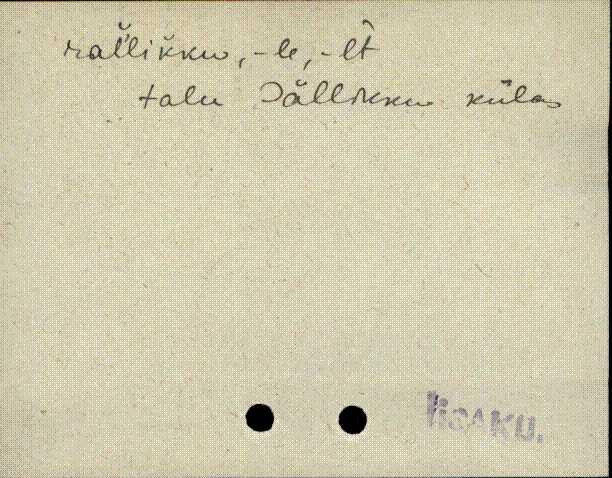 rällikku, -le, -lt
talu Jällikku külas
Iisaku.